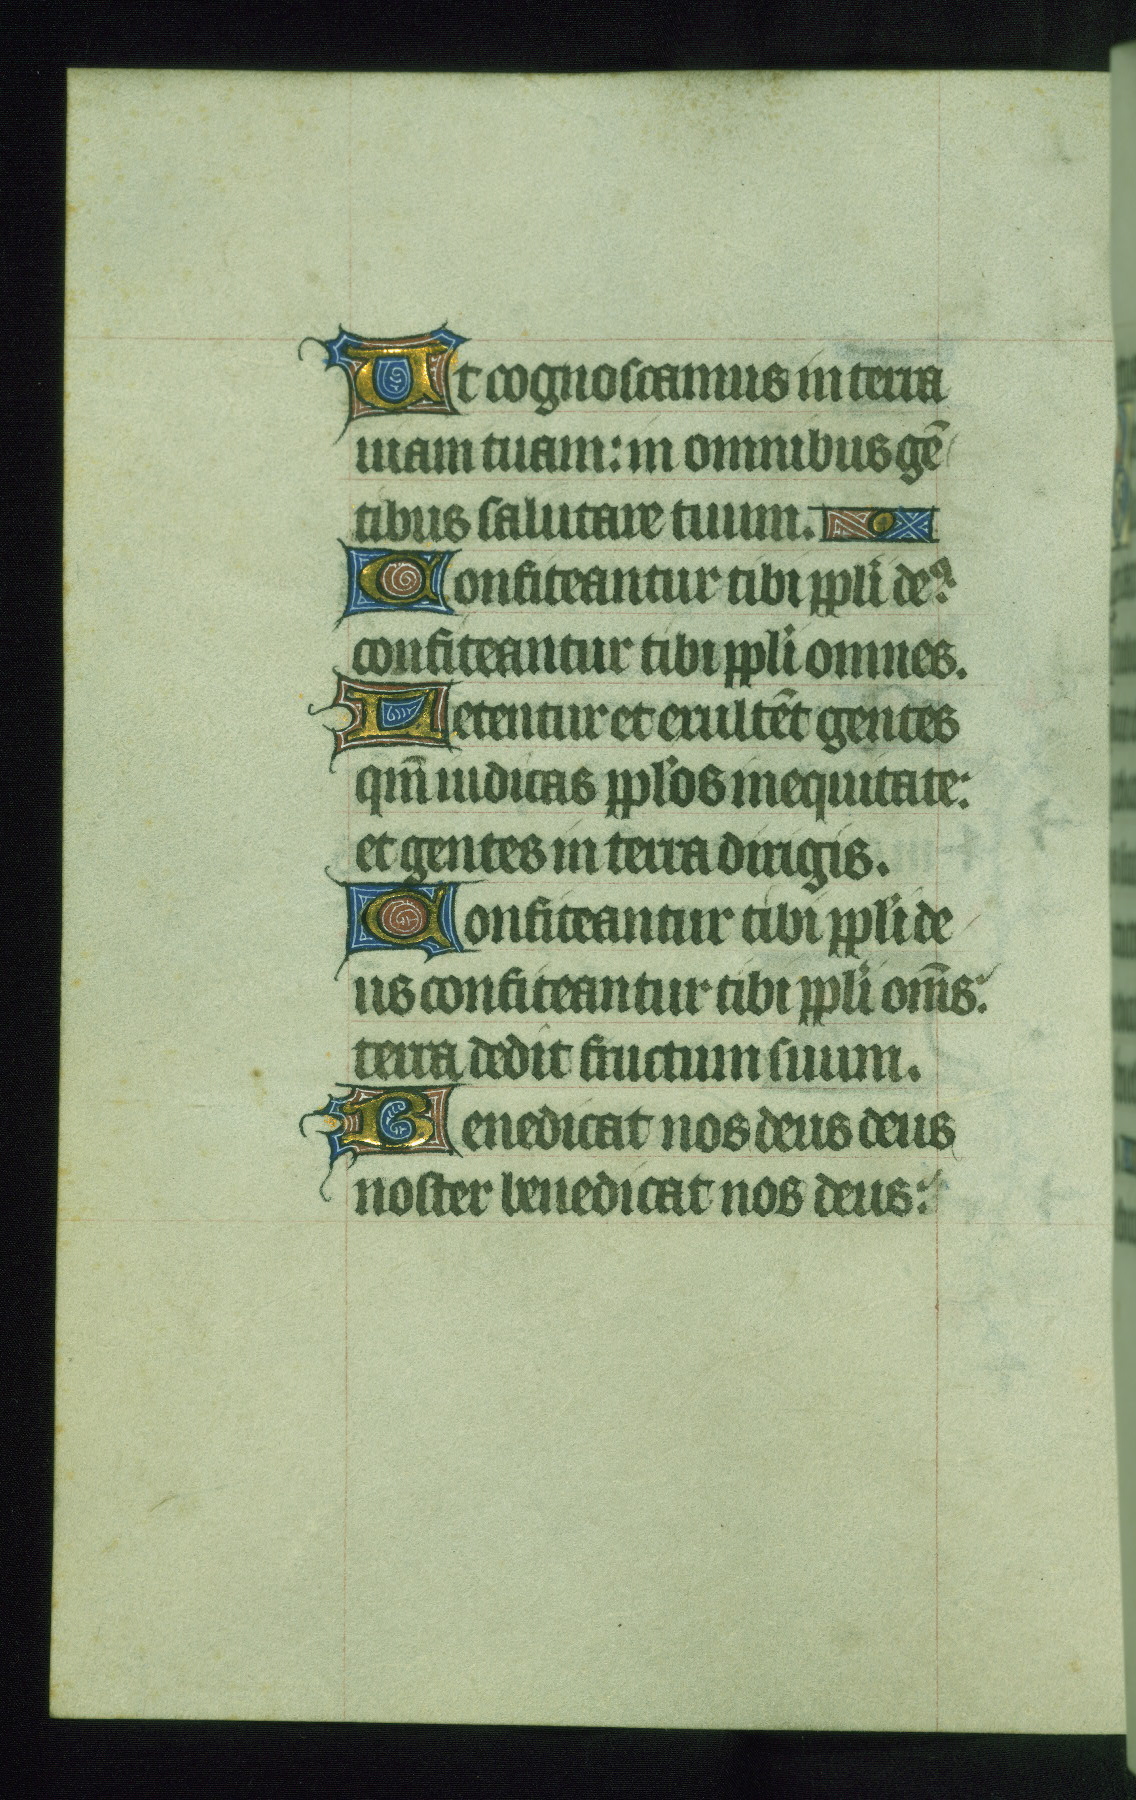 Ut cognoscamus in terra
uiam tuam: in omnibus gē
tibus salutare tuum.
Confiteantur tibi ppli deꝰ:
confiteantur tibi ppli omnes.
Letentur et exultēt gentes
qm̄ iudicas pplos in equitate:
et gentes in terra dirigis.
Confiteantur tibi ppli de
us confiteantur tibi ppli om̄s:
terra dedit fructum suum.
Benedicat nos deus deus
noster benedicat nos deus: